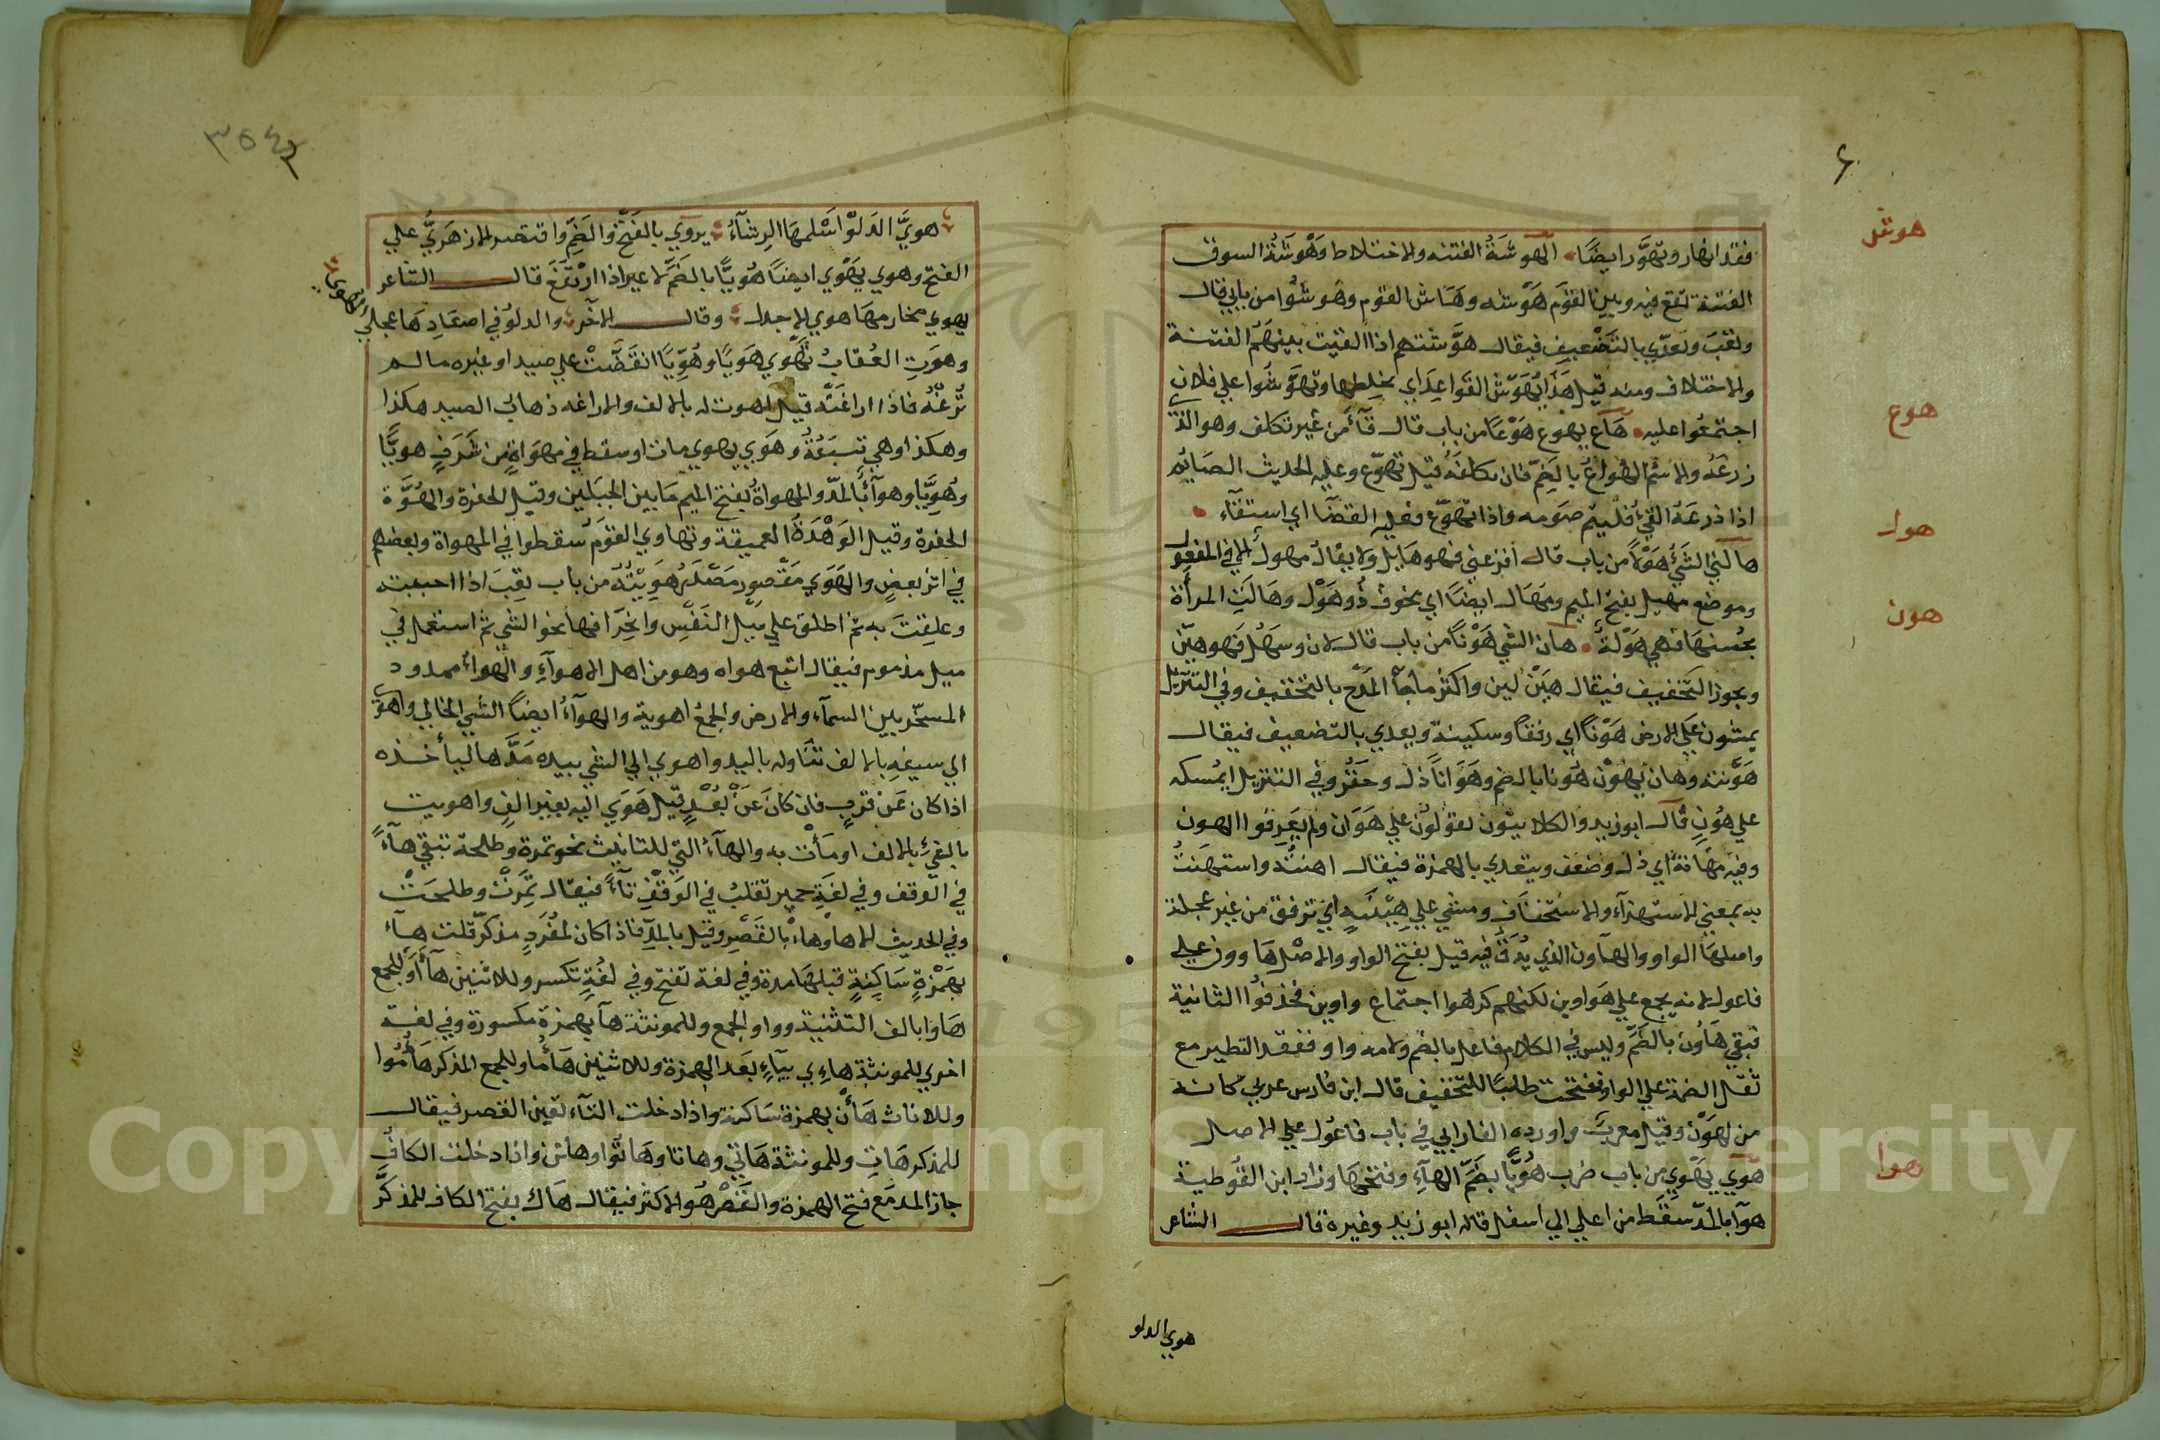 هوش
فقد انهار وتهوَّر ايضًا الهَوشَةُ الفتنه والاختلاط وَهْوشَةُ السوق
الفتنة تقع فيه وبين القوم هَوْشه وهَاش القوم وهَوشُوا من بابي قال
وتعب وتعدّي بالتَضْعيف فيقال هوَّشتهم اذا القيت بينهَمُ الفتنة
والاختلاف ومنه قيل هَذَا يُهَوّش القَواعِدَ اي يخلِطها وتهَوَّشُوا علي فلان
هوع
اجتمعُوا عليه هَآع يهوع هَوْعًا من باب قال قآءَ من غير تكلف وهو الذي
ذرعَهُ والاسْمُ الهُواعُ بالضَمّ فان تكلفَهُ قيل تهوّع وعليه الحديث الصَائم
اذا ذرعَهُ القيْءُ فليتم صَومه واذا تهوّع فعليه القضَا اي استقآء
هول
هالَني الشَيْءُ هَوْلًا من باب قال افزعني فهو هَايل ولا يقالُ مهولٌ الا في المفعول
وموضع مهيل بفتح الميم ومهَال ايضًا اي مخوف ذُو هَوْل وهَالَتِ المرأة
هون
بحُسنهَا فهي هَوْلةٌ هان الشي هَوْنًا من باب قال لان وسهُل فهو هيّن
ويجوز التخفيف فيقال هيْنٌ لين واكثر ما جآ المَدْح بالتخفيف وفي التنزيل
يمشون علَي الارض هَوْنًا اي رفقًا وسكينة ويعدي بالتضعيف فيقال
هَوَّنته وهان يَهُوْن هُونا بالضم وهَوَاناً ذل وحَقُر وفي التنزيل ايمُسكه
علي هُونٍ قال ابوزيد والكلابيّون يقولُون علي هَوَان ولم يَعرفوا الهون
وفيه مَهَانةٌ اي ذل وضعف ويتعدي بالهمزة فيقال اهنتُه واستهَنتُ
به بمعني الاستهزآء والاستخفاف ومشي علي هِيْنَتِهِ اي ترفق من غير عجلة
واصلهَا الواو والهَاون الذي يُدَقّ فيه قيل بفتح الواو والاصْل هَاوون علي
فاعول لانه يجمع علي هَواوين لكنهم كرهوا اجتماع واوين فحذفوُا الثانية
فبقي هَاوُن بالضَّم وليس في الكلام فاعل بالضم ولامه واو ففقد النظير مع
ثقل الضمة علي الواو ففتحت طلبًا للتخفيف قال ابن فارس عربي كانه
من الهَوْن وقيل معربٌ واورده الفارابي في باب فاعُول علي الاصل
هوا
هَوَي يَهْوِي من باب ضرب هُوِيًّا بضَمّ الهآءِ وفتحهَا وزاد ابن القُوطية
هوآ بالمَدّ سقَط من اعلي الي اسفل قاله ابو زيد وغيره قال الشاعر
هوي الدلو
هويَّ الدَلوْ اَسْلمهَا الرِشآءُ يروَي بالفَتْح والضَمّ واقتصر الازهَريُّ علي
الفتح وهوي يَهْوي ايضًا هُوِيًّا بالضَمّ لا غير اذا ارْتفَعَ قال الشاعر
يهوي مخارمهَا هوي الاجدل وقال الآخر والدلوُ في اصعَادِهَا عجلي
وهوَتِ العُقابُ تَهْوي هَويًا وهُوِيًّا انقَضَّتْ علي صيد او غيره مالم
تُرغْهُ فاذا اراغَتْه قيل اهوت له بالالف والاراغه ذهابُ الصيد هكذا
وهكذا وهي تتبَعُهُ وهَوَي يهوي مات او سقط في مهوَاةٍ من شَرَفٍ هويًّا
وهُويًّا وهوآءً بالمَدّ والمهواةُ بفتح الميم مَا بين الجبَلين وقيل الحفرة والهُوَّة
الحفرة وقيل الوَهْدَةُ العميقة وتهاوي القوَمُ سقطوا في المهواة وبعضهم
في اثر بعضٍ والهَوَي مَقْصُور مَصْدَرُ هَوِيْتُهُ من باب تعِبَ اذا احببته
وعلِقتَ به ثم اطلق علي مَيْل النَفْسِ وانحِرَافهَا نحو الشَي ثم استعمل في
ميل مذموم فيقال اتبع هواه وهو من اهل الاهوآءِ والهوآءُ ممدود
المسخّر بين السمآء والارض والجمعُ اهوية والهوآءُ ايضًا الشي الخالي واهْوَي
الي سيفِهِ بالالف تنَاوله باليد واهوي الي الشي بيده مَدَّهَا ليأخذه
اذا كان عَن قرْبٍ فان كانَ عَنْ بُعْدٍ قيل هَوَي اليه بغير الفٍ واهويت
بالشيْء بالالف اومَأتُ به والهآءُ التي للتانيث نحو تمرة وطلحة تبقي هَآءً
في الوقف وفي لغَةِ حمير تقلبُ في الوَقْفِ تآءً فيقال تَمَرتْ وطلحَتْ
وفي الحديث الا هاوهاءْ بالقَصْر وقيل بالمدّ فاذا كان لمُفْرَدٍ مذكّر قلت هآء
بهَمْزةٍ سَاكِنةٍ قبلهَا مدة وفي لغة تفتح وفي لغُةٍ تكسر وللاثنين هَآءَا وللجَمع
هَاوا بالف التثنية وواو الجمع وللمونثة هآء بهمزة مكسورة وفي لغة
اخري للمونثة هاءِي بيآءٍ بَعَد الهمزة وللاثنين هَاؤُما وللجمع المذكر هَاؤُمُوا
وللاناث هَاؤُنَّ بهمزة سَاكنة واذا دخلت التآء تعين القصر فيقال
للمذكر هَاتِ وللمونثة هَاتي وهاتا وهَاتُوا وهاتن واذا دخلت الكافُ
جاز المد مَع فتح الهمزة والقَصْر هُو الاكثر فيقال هَاك بفتح الكاف للمذكَّر